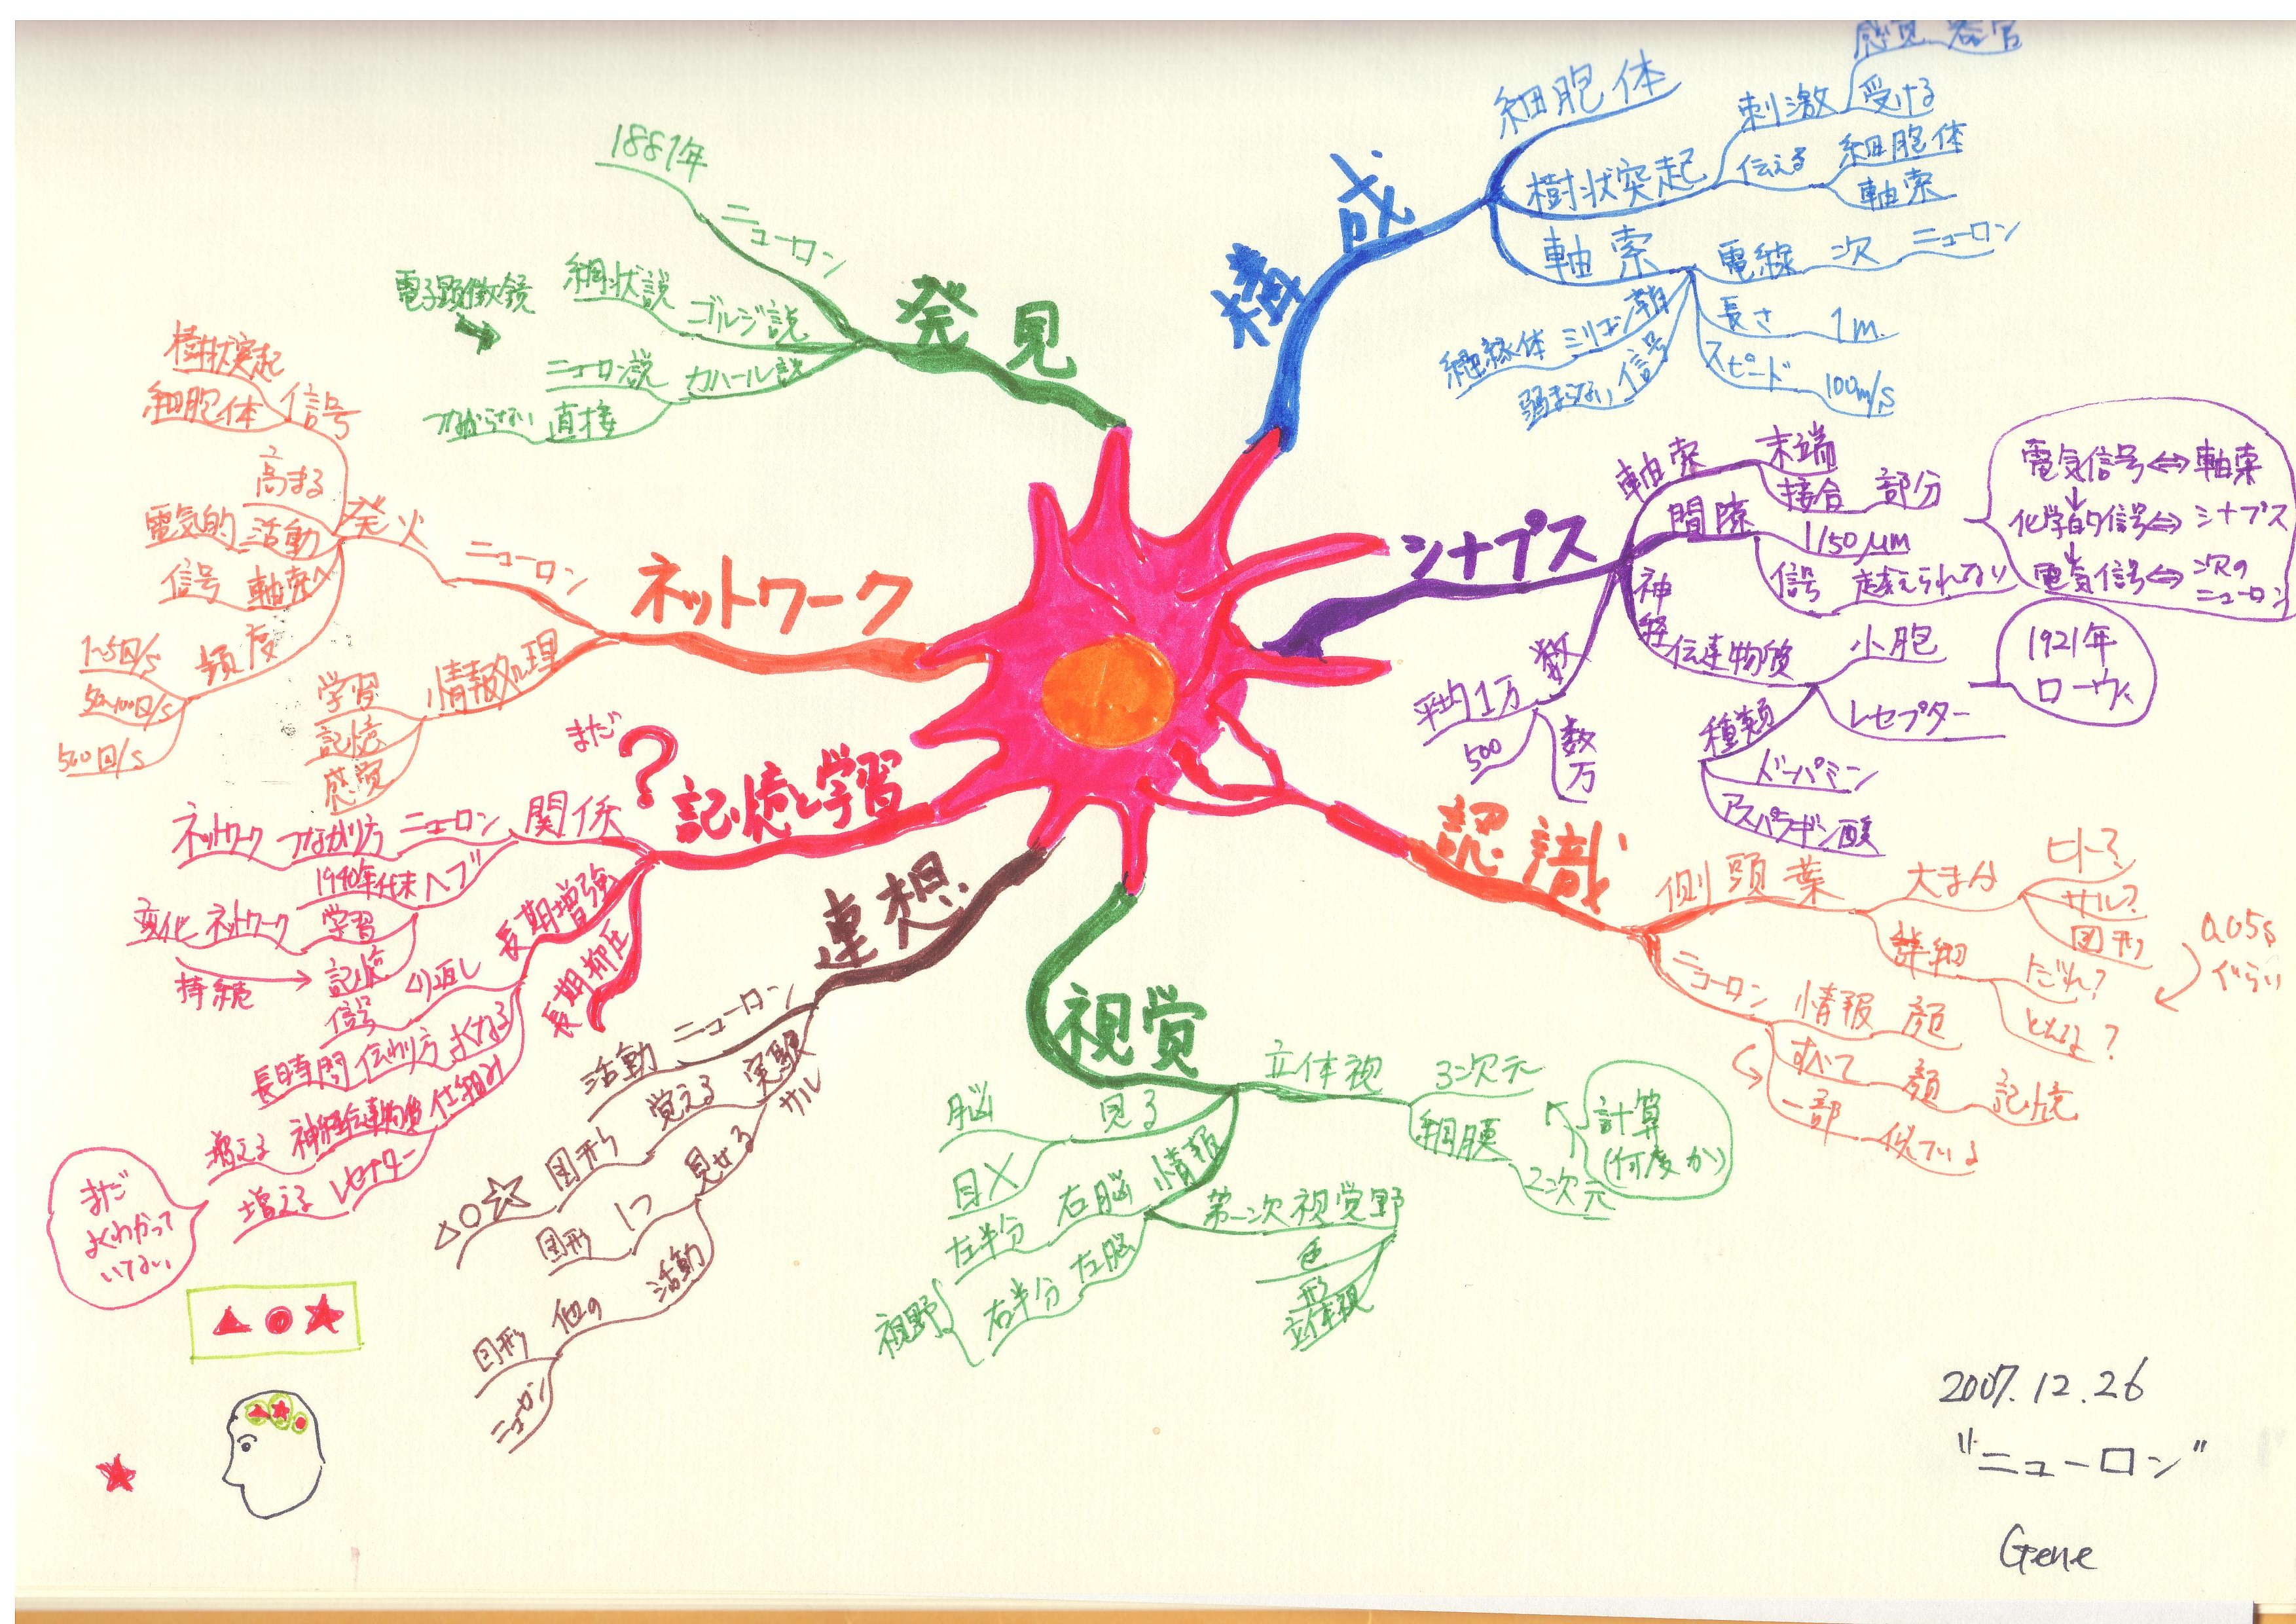 構成
細胞体
樹状突起
刺激
受ける
感覚 器官
伝える
細胞体
軸索
軸索
電線 次 ニューロン
長さ 1m.
スピード 100m/s
絶縁体 ミリエン鞘
弱まらない 信号
シナプス
軸索 末端
接合 部分
間隙
1/50μm
信号 越えられない
電気信号⇔軸索
↓
化学的信号⇔シナプス
↓
電気信号⇔次の
ニューロン
神経伝達物質
小胞
レセプター
1921年
ローウィ
種類
ドーパミン
アスパラギン酸
数
平均1万
500
数万
認識
側頭葉 大まか
ヒト?
サル?
図形
詳細
だれ?
どんな?
0.05s
ぐらい
ニューロン 情報 顔
すべて 顔 記憶
一部 似ている
視覚
立体視 3次元
網膜 2次元
計算
(何度か)
脳 見る
目×
情報
左半分 右脳
右半分 左脳
視野
第一次視覚野
色
形
立体視
連想
活動 ニューロン
実験
サル
△○☆ 図形 覚える
図形 1つ 見せる
図形 他の 活動
ニューロン
記憶と学習
まだ ?
関係
ネットワーク つながり方 ニューロン
1940年代末 ヘブ
変化 ネットワーク 学習
持続 → 記憶
長期増強
長期抑圧
信号 くり返し
長時間 伝わり方 よくなる
増える 神経伝達物質 仕組み
増える レセプター
まだ
よくわかって
いてない
ネットワーク
ニューロン
発火
樹状突起
細胞体 信号
高まる
電気的 活動
信号 軸索へ
頻度
1~5回/s
50~100回/s
500回/s
情報処理
学習
記憶
感覚
発見
1887年
ニューロン
網状説 ゴルジ説
電子顕微鏡
ニューロン説 カハール説
つながらない 直接
2007.12.26
"ニューロン"
Gene